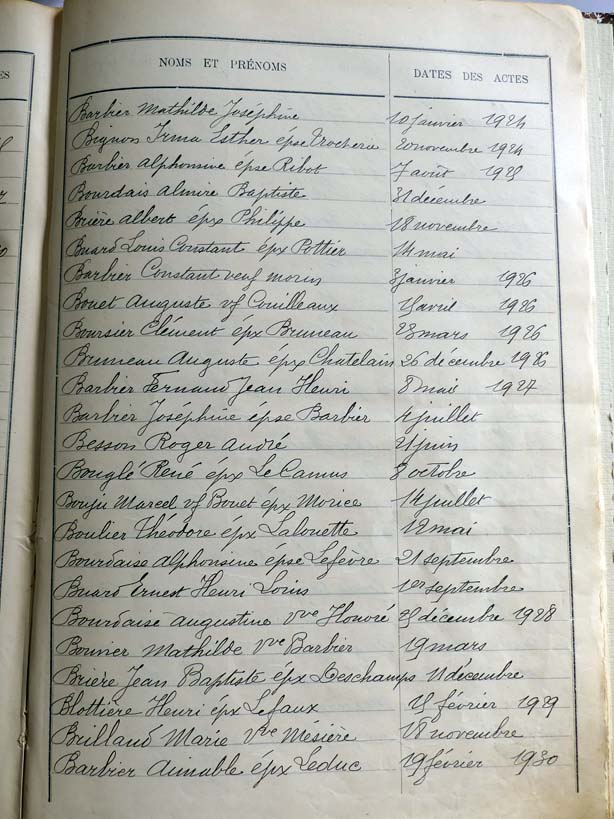 ES
NOMS ET PRÉNOMS DATES DES ACTES
Barbier Mathilde Joséphine 10 janvier 1924
Bignon Irma Esther épse Trocherie 20 novembre 1924
Barbier Alphonsine épse Ribot 7 août 1925
Bourdais Almire Baptiste 31 décembre
Brière Albert épx Philippe 18 novembre
Buard Louis Constant épx Pottier 14 mai
Barbier Constant veuf Morin 3 janvier 1926
Bouet Auguste vf Couilleaux avril 1926
Boursier Clément épx Bruneau 23 mars 1926
Bruneau Auguste épx Chatelain 26 décembre 1926
Barbier Fernand Jean Henri 8 mai 1927
Barbier Joséphine épse Barbier 4 juillet
Besson Roger André 21 juin
Bouglé René épx Le Camus 8 octobre
Bouju Marcel vf Bouet épx Morice 14 juillet
Boulier Théodore épx Lalouette 12 mai
Bourdaise Alphonsine épse Lefèvre 21 septembre
Buard Ernest Henri Louis 1er septembre
Bourdaise Augustine Vve Honoré décembre 1928
Bounier Mathilde Vve Barbier 19 mars
Brière Jean Baptiste épx Deschamps 11 décembre
Blottière Henri épx Lefaux février 1929
Brilland Marie Vve Mésière 18 novembre
Barbier Aimable épx Leduc 19 février 1930